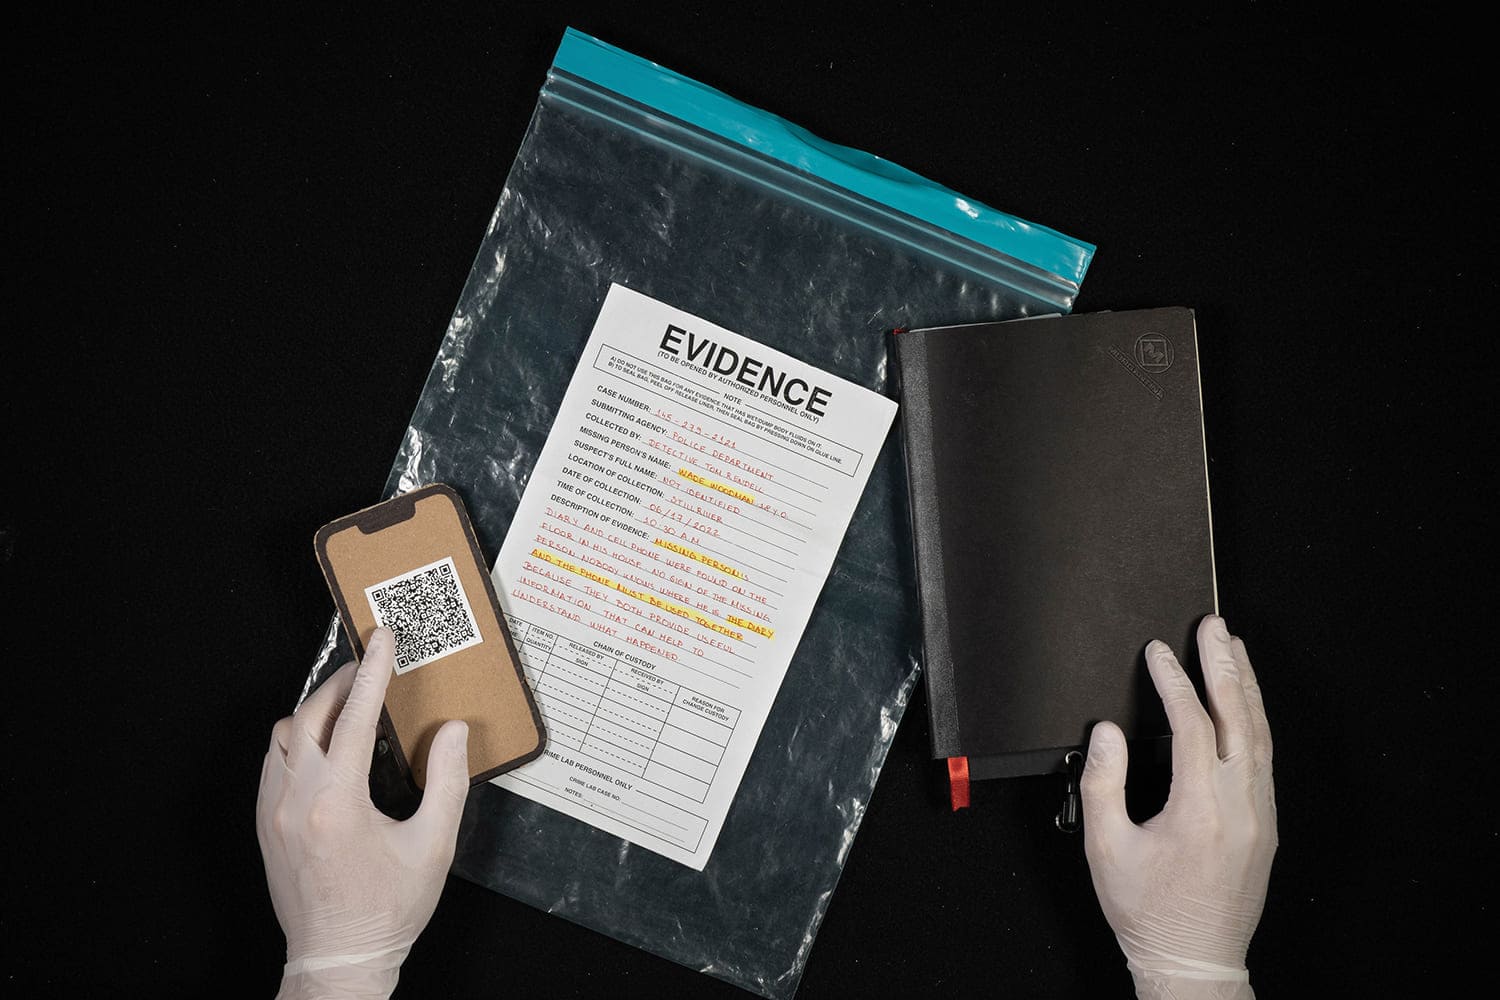 EVIDENCE
(TO BE OPENED BY AUTHORIZED PERSONNEL ONLY)
NOTE
A) DO NOT USE THIS BAG FOR ANY EVIDENCE THAT HAS WET/DUMP BODY FLUIDS ON IT.
B) TO SEAL BAG, PEEL OFF RELEASE LINER, THEN SEAL BAG BY PRESSING DOWN ON GLUE LINE.
CASE NUMBER: 145-279-2121
SUBMITTING AGENCY: POLICE DEPARTMENT
COLLECTED BY: DETECTIVE TOM RENDELL
MISSING PERSON'S NAME: WADE WOODMAN
SUSPECT'S FULL NAME: NOT IDENTIFIED
LOCATION OF COLLECTION: STILLRIVER
DATE OF COLLECTION: 06/17/2022
TIME OF COLLECTION: 10:30 A.M.
DESCRIPTION OF EVIDENCE: MISSING PERSON'S
DIARY AND CELL PHONE WERE FOUND ON THE
FLOOR IN HIS HOUSE. NO SIGN OF THE MISSING
PERSON. NOBODY KNOWS WHERE HE IS. THE DIARY
AND THE PHONE MUST BE USED TOGETHER
BECAUSE THEY BOTH PROVIDE USEFUL
INFORMATION THAT CAN HELP TO
UNDERSTAND WHAT HAPPENED.
CHAIN OF CUSTODY
DATE ITEM NO. RELEASED BY RECEIVED BY REASON FOR
QUANTITY SIGN SIGN CHANGE CUSTODY
CRIME LAB PERSONNEL ONLY
CRIME LAB CASE NO.
NOTES: